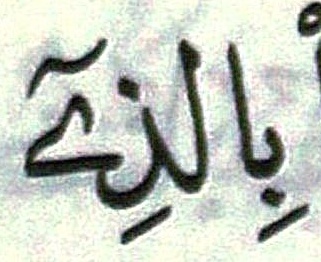 بِالذِےٓ